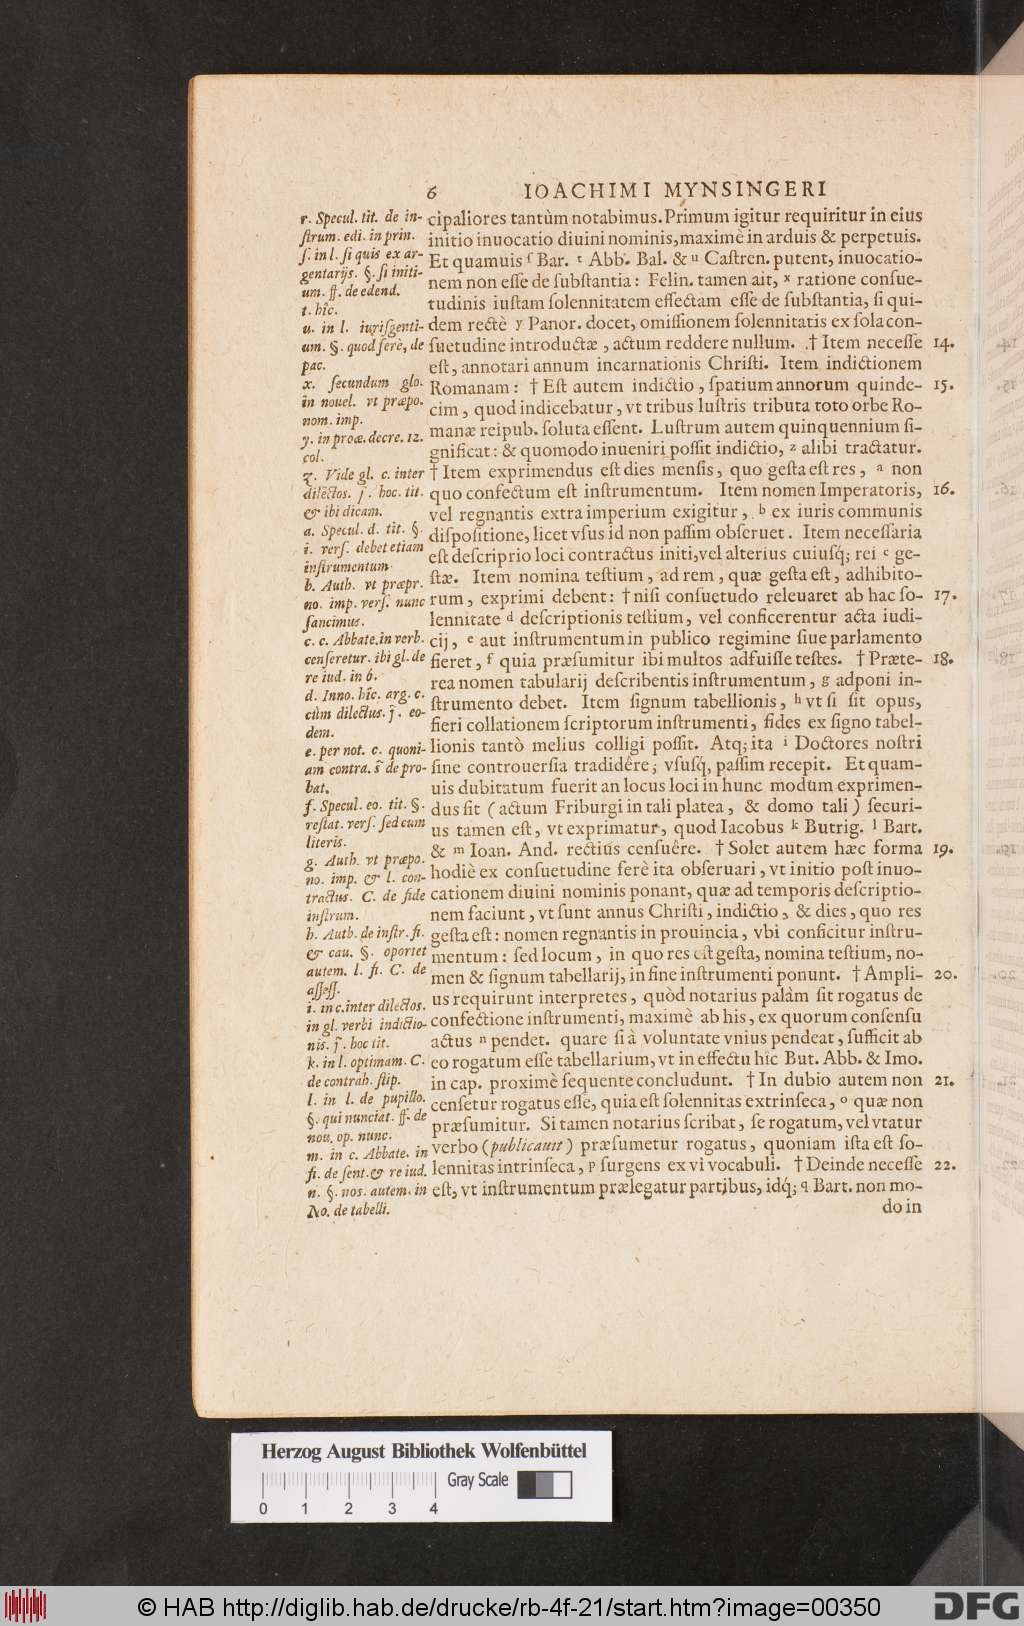 6 IOACHIMI MYNSINGERI
r. Specul. tit. de in-
ſtrum. edi. in prin.
ſ. in l. ſi quis ex ar-
gentarijs. §. ſi initi-
um. ff. de edend.
t. hîc.
u. in l. iuriſgenti-
um. §. quod ferè, de
pac.
x. ſecundum glo.
in nouel. vt præpo.
nom. imp.
y. in proœ. decre. 12.
col.
z. Vide gl. c. inter
dilectos. j. hoc. tit.
& ibi dicam.
a. Specul. d. tit. §.
i. verſ. debet etiam
inſtrumentum
b. Auth. vt præpr.
no. imp. verſ. nunc
ſancimus.
c. c. Abbate. in verb.
cenſeretur. ibi gl. de
re iud. in 6.
d. Inno. hîc. arg. c.
cùm dilectus. j. eo-
dem.
e. per not. c. quoni-
am contra. s̃ de pro-
bat.
f. Specul. eo. tit. §.
reſtat. verſ. ſed cum
literis.
g. Auth. vt præpo.
no. imp. & l. con-
tractus. C. de fide
inſtrum.
h. Auth. de inſtr. fi.
& cau. §. oportet
autem. l. fi. C. de
aſſeſſ.
i. in c. inter dilectos.
in gl. verbi indictio-
nis. j. hoc tit.
k. in l. optimam. C.
de contrah. ſtip.
l. in l. de pupillo.
§. qui nunciat. ff. de
nou. op. nunc.
m. in c. Abbate. in
fi. de ſent. & re iud.
n. §. nos. autem. in
No. de tabelli.
cipaliores tantùm notabimus. Primum igitur requiritur in eius
initio inuocatio diuini nominis, maximè in arduis & perpetuis.
Et quamuis ſ Bar. t Abb. Bal. & u Caſtren. putent, inuocatio-
nem non eſſe de ſubſtantia: Felin. tamen ait, x ratione conſue-
tudinis iuſtam ſolennitatem effectam eſſe de ſubſtantia, ſi qui-
dem rectè y Panor. docet, omiſſionem ſolennitatis ex ſola con-
ſuetudine introductæ, actum reddere nullum. † Item neceſſe 14.
eſt, annotari annum incarnationis Chriſti. Item indictionem
Romanam: † Eſt autem indictio, ſpatium annorum quinde- 15.
cim, quod indicebatur, vt tribus luſtris tributa toto orbe Ro-
manæ reipub. ſoluta eſſent. Luſtrum autem quinquennium ſi-
gnificat: & quomodo inueniri poſſit indictio, z alibi tractatur.
† Item exprimendus eſt dies menſis, quo geſta eſt res, a non
quo confectum eſt inſtrumentum. Item nomen Imperatoris, 16.
vel regnantis extra imperium exigitur, b ex iuris communis
diſpoſitione, licet vſus id non paſſim obſeruet. Item neceſſaria
eſt deſcriptio loci contractus initi, vel alterius cuiuſq́; rei c ge-
ſtæ. Item nomina teſtium, ad rem, quæ geſta eſt, adhibito-
rum, exprimi debent: † niſi conſuetudo releuaret ab hac ſo- 17.
lennitate d deſcriptionis teſtium, vel conficerentur acta iudi-
cij, e aut inſtrumentum in publico regimine ſiue parlamento
fieret, f quia præſumitur ibi multos adfuiſſe teſtes. † Præte- 18.
rea nomen tabularij deſcribentis inſtrumentum, g adponi in-
ſtrumento debet. Item ſignum tabellionis, h vt ſi ſit opus,
fieri collationem ſcriptorum inſtrumenti, fides ex ſigno tabel-
lionis tantò melius colligi poſſit. Atq; ita i Doctores noſtri
ſine controuerſia tradidêre; vſuſq́, paſſim recepit. Et quam-
uis dubitatum fuerit an locus loci in hunc modum exprimen-
dus ſit (actum Friburgi in tali platea, & domo tali) ſecuri-
us tamen eſt, vt exprimatur, quod Iacobus k Butrig. l Bart.
& m Ioan. And. rectius cenſuêre. † Solet autem hæc forma 19.
hodiè ex conſuetudine ferè ita obſeruari, vt initio poſt inuo-
cationem diuini nominis ponant, quæ ad temporis deſcriptio-
nem faciunt, vt ſunt annus Chriſti, indictio, & dies, quo res
geſta eſt: nomen regnantis in prouincia, vbi conficitur inſtru-
mentum: ſed locum, in quo res eſt geſta, nomina teſtium, no-
men & ſignum tabellarij, in fine inſtrumenti ponunt. † Ampli- 20.
us requirunt interpretes, quòd notarius palàm ſit rogatus de
confectione inſtrumenti, maximè ab his, ex quorum conſenſu
actus n pendet. quare ſi à voluntate vnius pendeat, ſufficit ab
eo rogatum eſſe tabellarium, vt in effectu hîc But. Abb. & Imo.
in cap. proximè ſequente concludunt. † In dubio autem non 21.
cenſetur rogatus eſſe, quia eſt ſolennitas extrinſeca, o quæ non
præſumitur. Si tamen notarius ſcribat, ſe rogatum, vel vtatur
verbo (publicauit) præſumetur rogatus, quoniam iſta eſt ſo-
lennitas intrinſeca, p ſurgens ex vi vocabuli. † Deinde neceſſe 22.
eſt, vt inſtrumentum prælegatur partibus, idq́; q Bart. non mo-
do in
Herzog August Bibliothek Wolfenbüttel
Gray Scale
0 1 2 3 4
© HAB http://diglib.hab.de/drucke/rb-4f-21/start.htm?image=00350
DFG